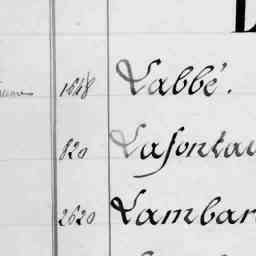 1648 Labbé.
820 Lafontai
2620 Lambar